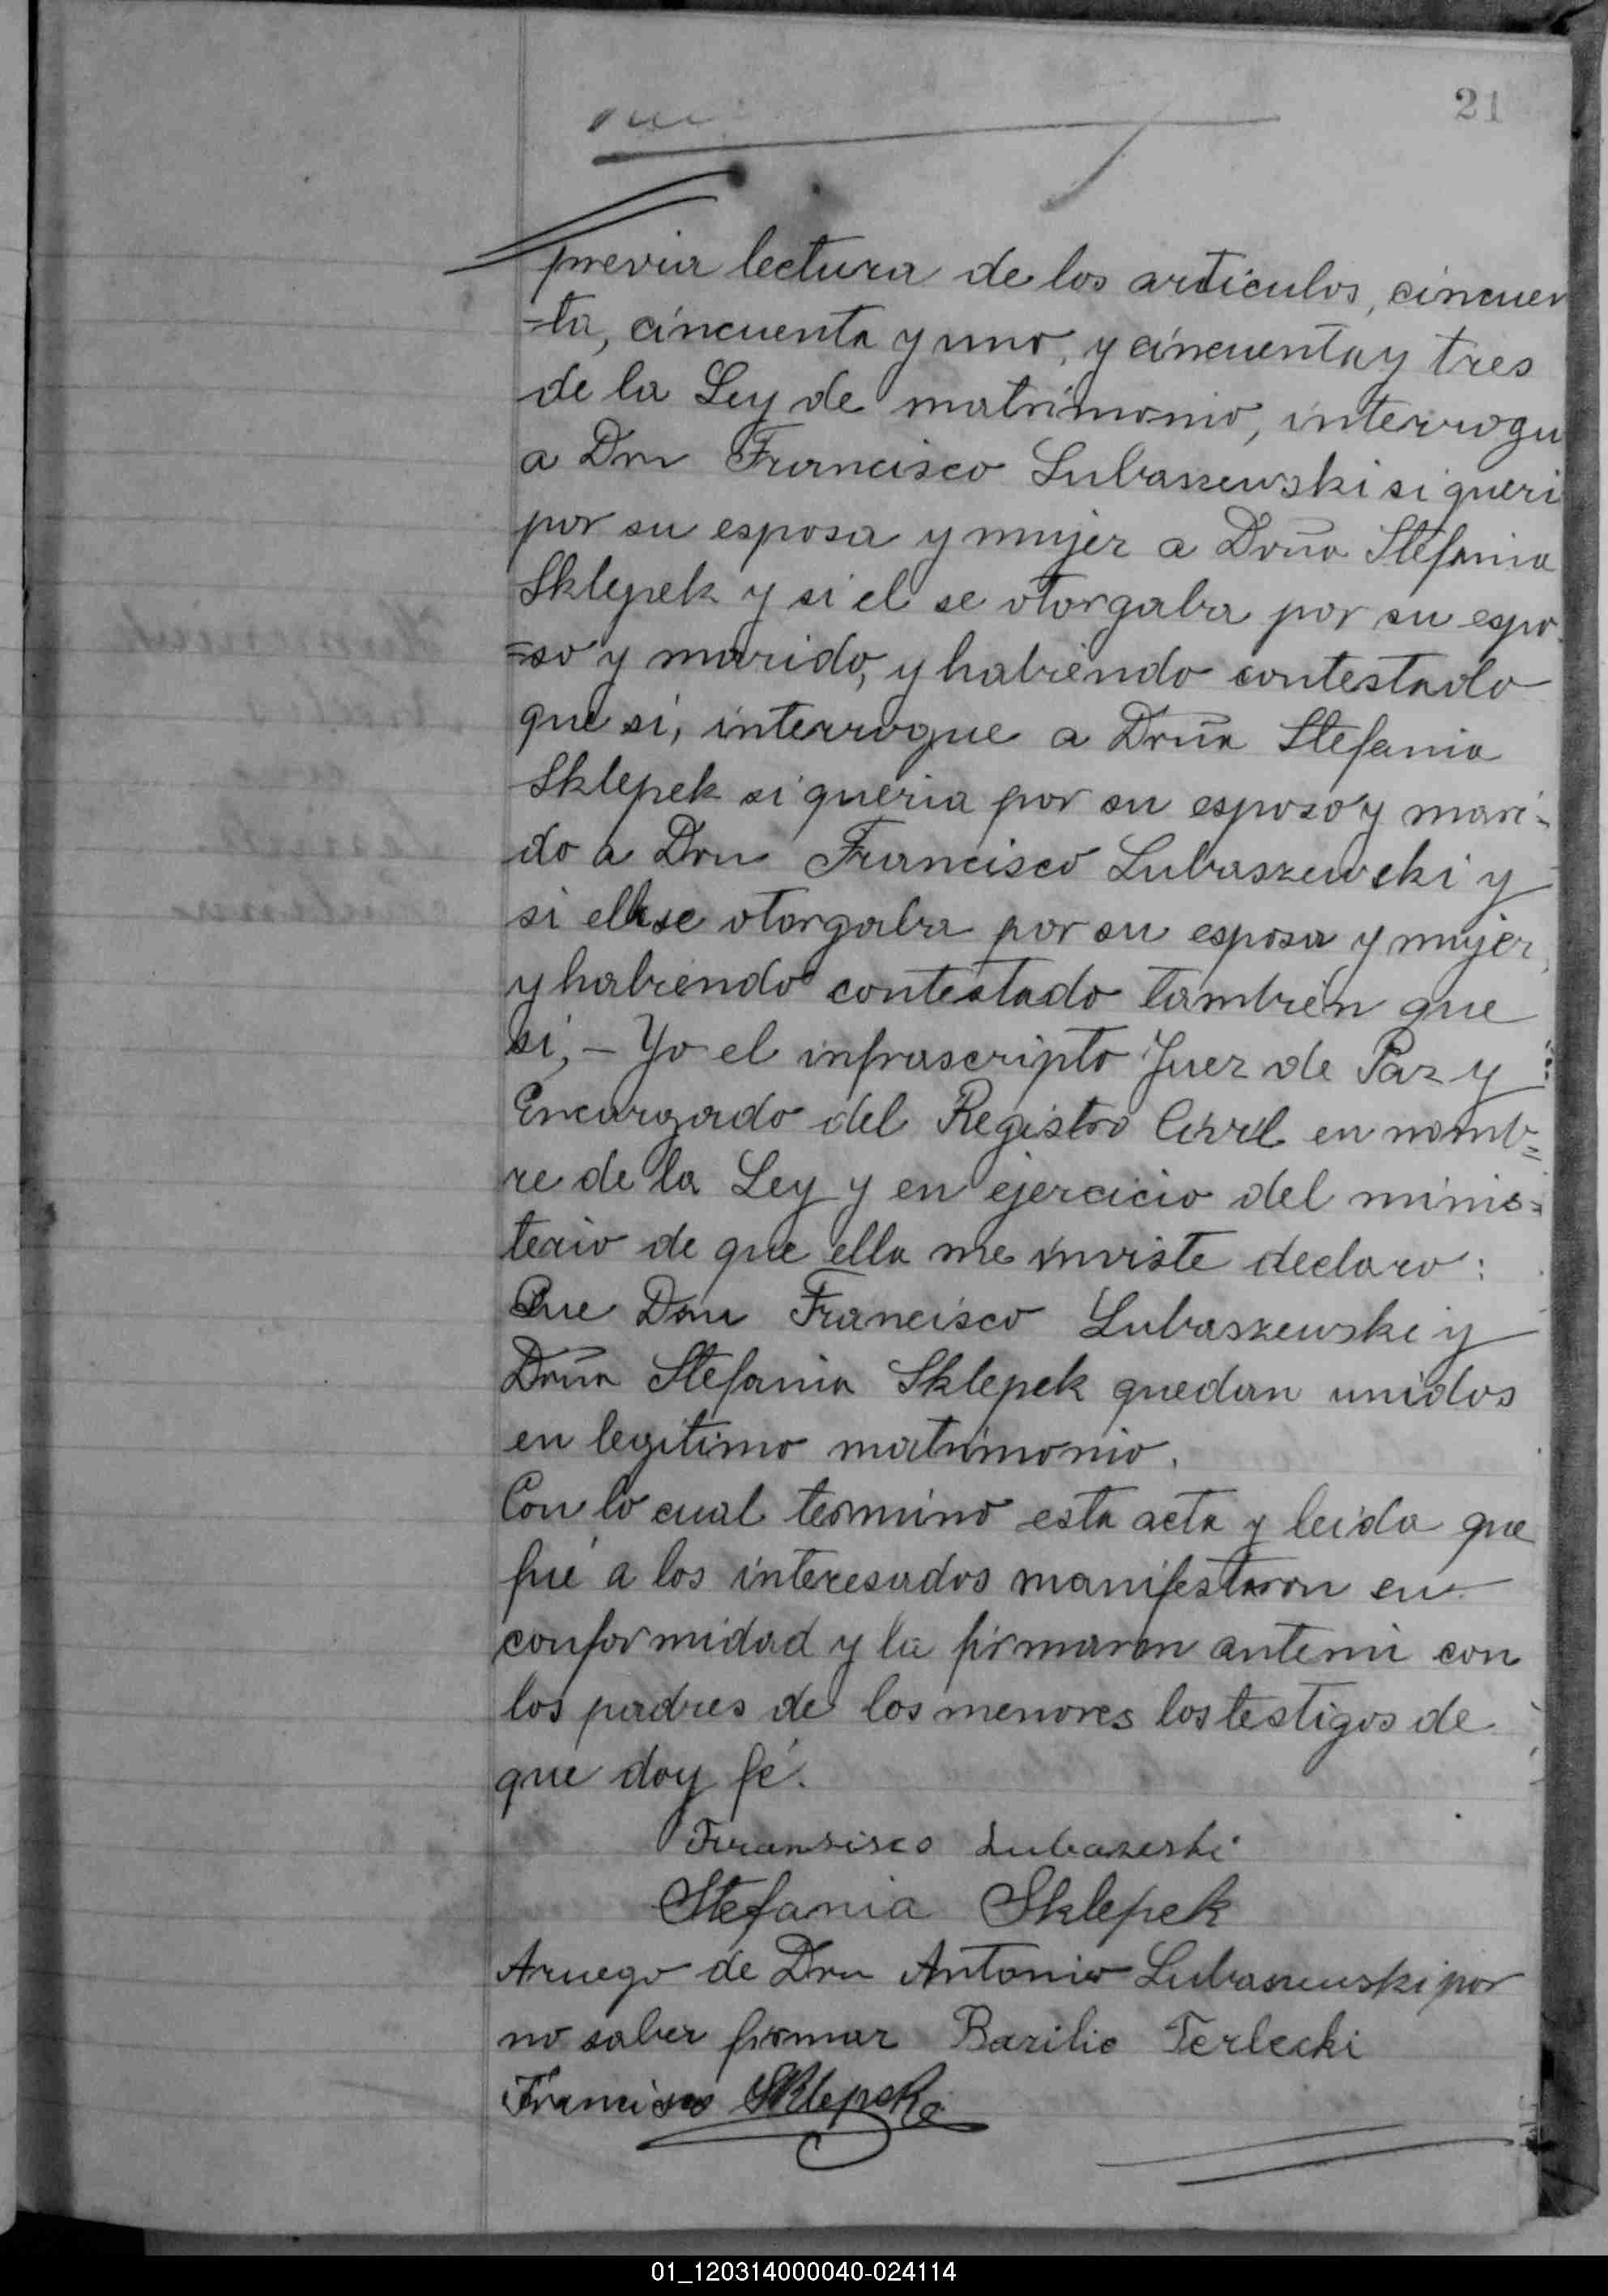 21
previa lectura de los articulos, cincuen
=ta, cincuenta y uno, y cincuenta y tres
de la Ley de matrimonio, interrogu
a Dn Francisco Lubaszewski si queri
por su esposa y mujer a Doña Stefania
Sklepek y si el se otorgaba por su espo
=so y marido, y habiendo contestado
que si, interrogue a Doña Stefania
Sklepek si queria por su esposo y mari-
do a Don Francisco Lubaszewski y
si ella se otorgaba por su esposa y mujer,
y habiendo contestado también que
si, - Yo el infrascripto Juez de Paz y
Encargado del Registro Civil en nomb=
re de la Ley y en ejercicio del minis=
terio de que ella me inviste declaro:
Que Don Francisco Lubaszewski y
Doña Stefania Sklepek quedan unidos
en legitimo matrimonio.
Con lo cual termino esta acta y leida que
fué a los interesados manifestaron su
conformidad y la firmaron ante mi con
los padres de los menores los testigos de
que doy fé.
Fransisco Lubazeski
Stefania Sklepek
Aruego de Don Antonio Lubaszewski por
no saber firmar Bazilio Terlecki
Francisco Sklepek
01_120314000040-024114